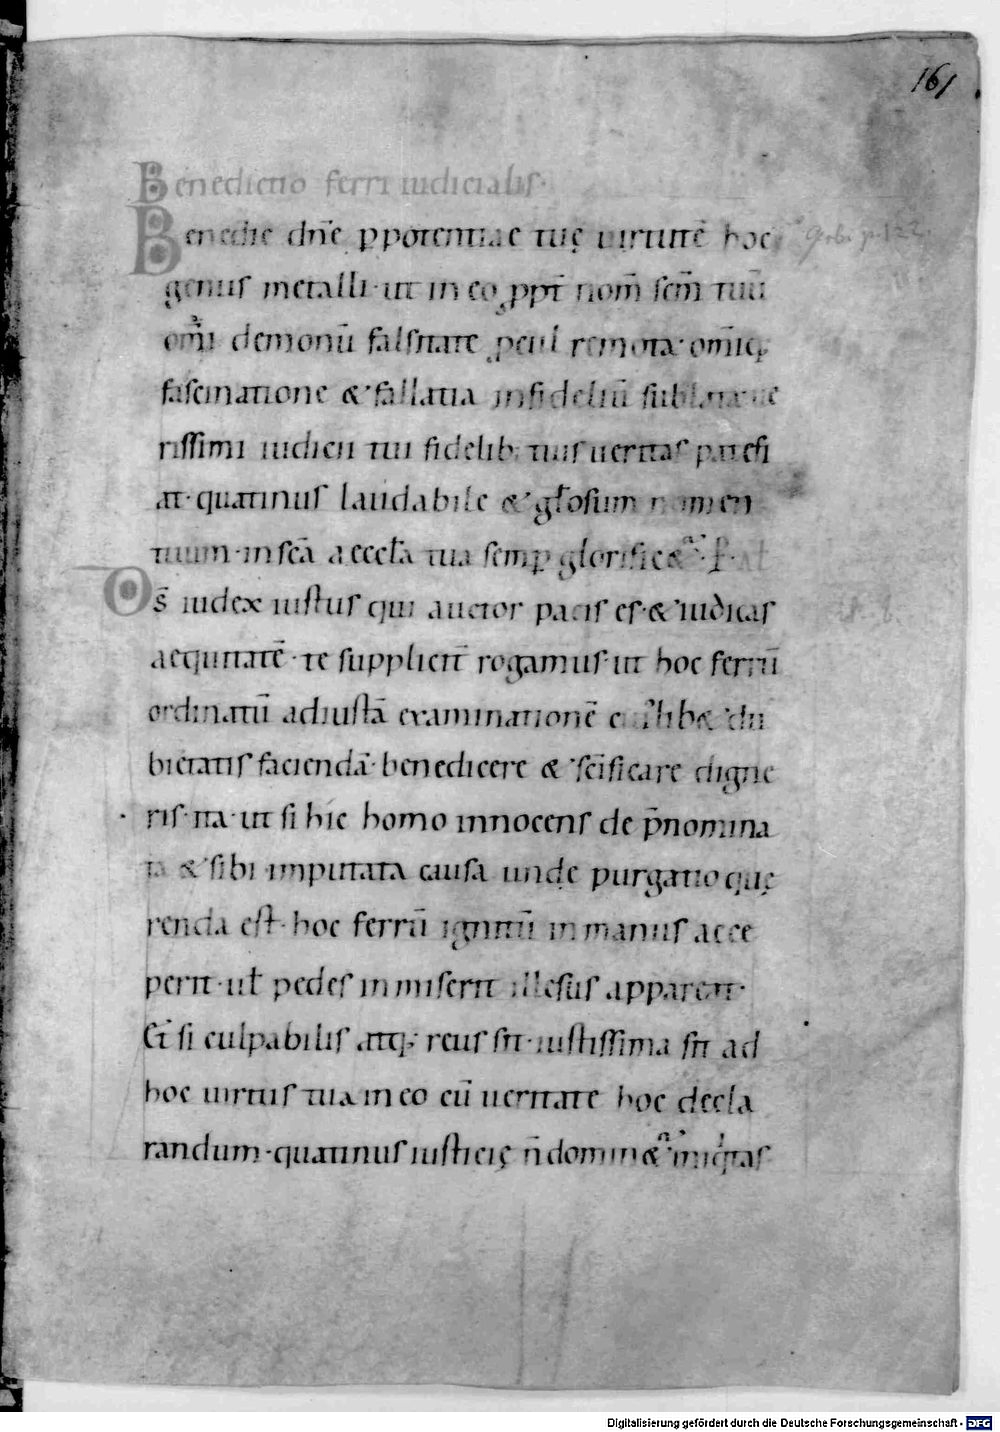 161
Benedictio ferri iudicialis·
Benedic dne̅ p potentiae tuę uirtute̅ hoc
genus metalli· ut in eo ppt̅ nom̅ sc̅m tuu̅
om̅i demonu̅ falsitate pcul remota· om̅iq;
fascinatione & fallatia infidelium̅ sublata ue
rissimi iudicii tui fidelib; tuis ueritas patefi
at· quatinus laudabile & gło̅sum nomen
tuum· in sc̅a aeccła tua semp̲ glorific&· P·
Ds̅ iudex iustus qui auctor pacis es· & iudicas
aequitate̅· te supplicit̅ rogamus· ut hoc ferru̅
ordinatu̅ ad iusta̅ examinatione̅ cuiłib& du
bietatis faciendā· benedicere & sc̅ificare digne
ris· ita· ut si hic homo innocens de p̅nomina
ta & sibi imputata causa unde purgatio quę
renda est· hoc ferru̅ ignitu̅ in manus acce
perit· uł pedes inmiserit illesus appareat·
Et si culpabilis atq; reus sit· iustissima sit ad
hoc uirtus tua in eo cu̅ ueritate hoc decla
randum· quatinus iusticię n̅ domin& iniq̇tas
Digitalisierung gefördert durch die Deutsche Forschungsgemeinschaft - DFG